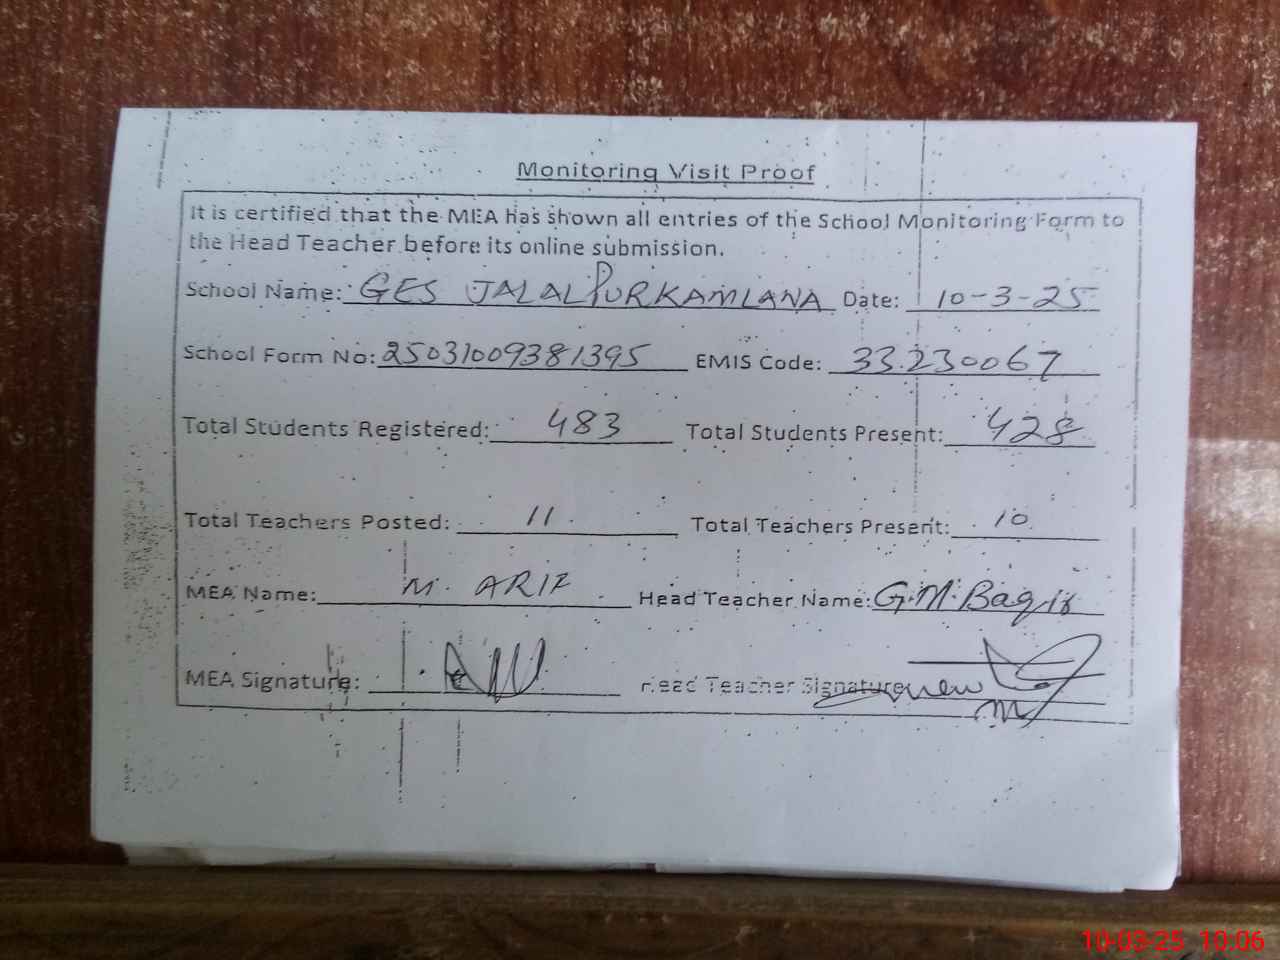 Monitoring Visit Proof
It is certified that the MEA has shown all entries of the School Monitoring Form to
the Head Teacher before its online submission.
School Name: GES JALALPURKAMLANA Date: 10-3-25
School Form No: 25031009381395 EMIS Code: 33230067
Total Students Registered: 483 Total Students Present: 428
Total Teachers Posted: 11 Total Teachers Present: 10
MEA Name: M. ARIF Head Teacher Name: G.M. Baqir
MEA Signature: Head Teacher Signature
10-03-25 10:06